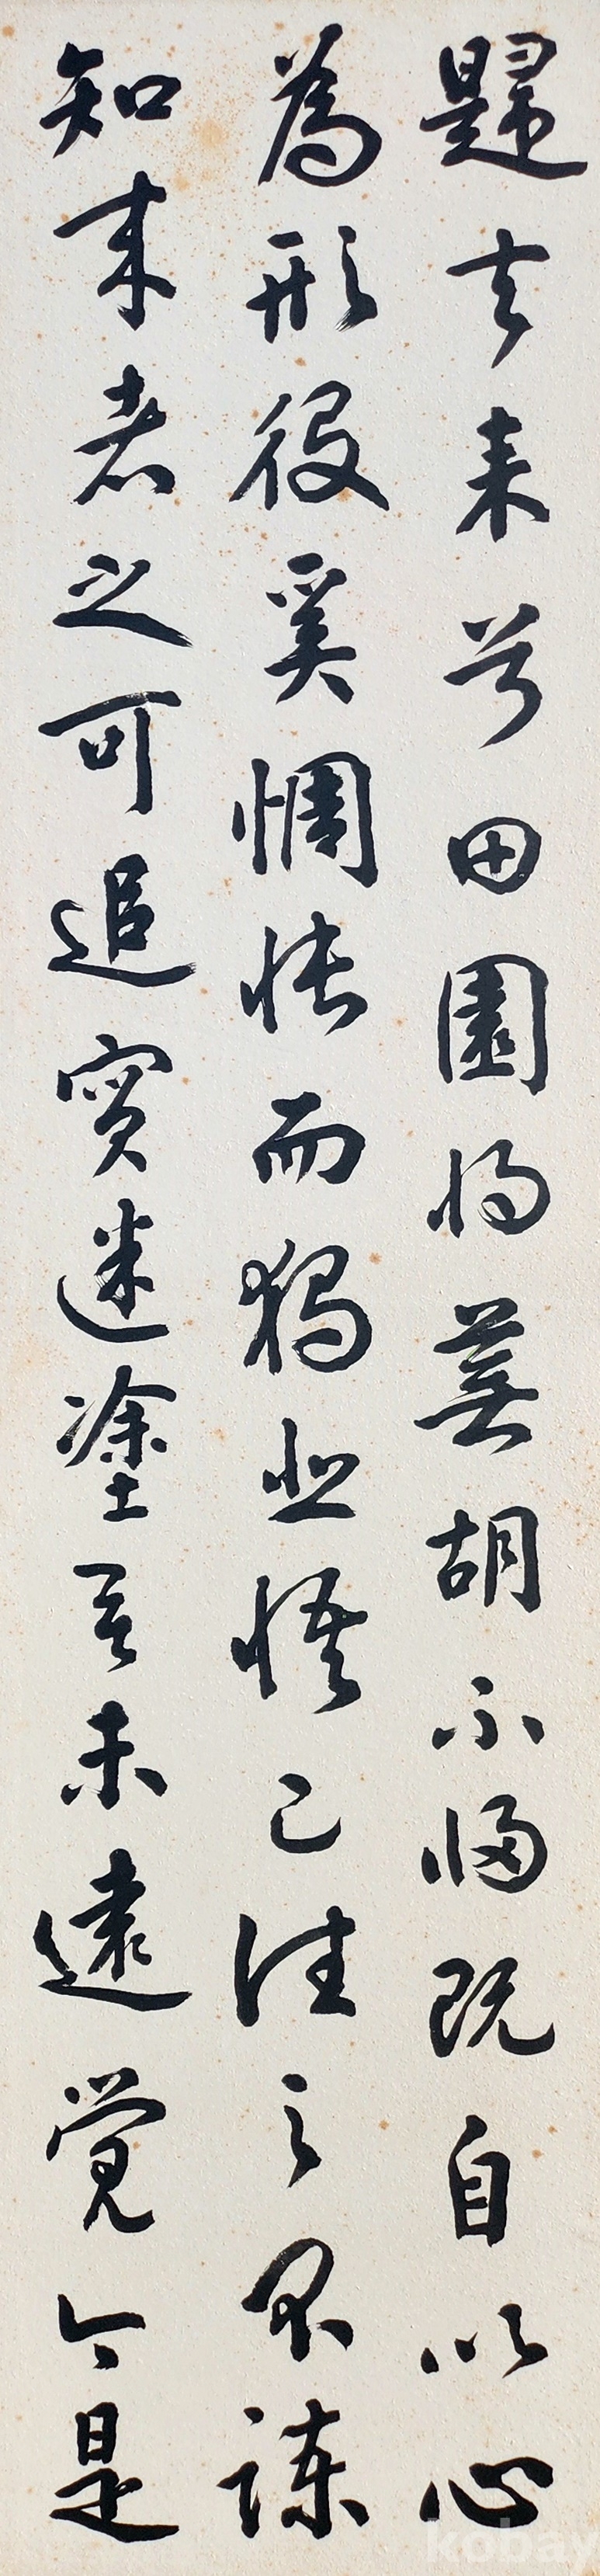 歸去来兮田園將蕪胡不歸既自以心
為形役奚惆悵而獨悲悟已往之不諫
知来者之可追實迷塗其未遠覺今是
kobay